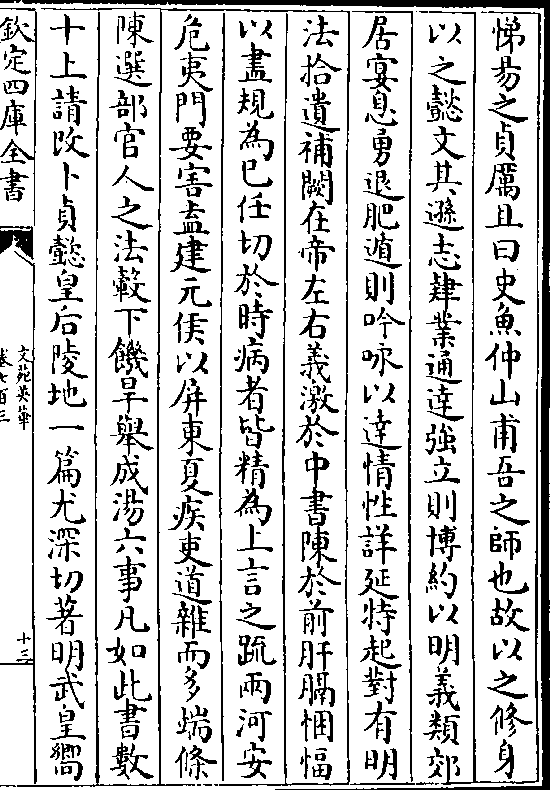 悌易之貞厲且曰史魚仲山甫吾之師也故以之修身
以之懿文其遜志肄業通達強立則博約以明義類郊
居宴息勇退肥遁則吟咏以達情性詳延特起對有明
法拾遺補闕在帝左右義激於中書陳於前肝膈悃愊
以盡規為已任切於時病者皆精為上言之疏兩河安
危夷門要害盍建元侯以屏東夏疾吏道雜而多端條
陳選部官人之法轂下饑旱舉成湯六事凡如此書數
十上請改卜貞懿皇后陵地一篇尤深切著明武皇嚮
欽定四庫全書
文苑英華
卷七百三
十三